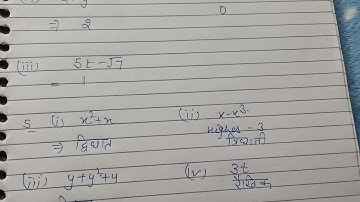 ⇒ 2
0
(iii) 5t-√7
= 1
5 (i) x²+x
⇒ द्विघात
(ii) x-x³
Highes - 3
त्रिघाती
(iii) y+y²+4
(v) 3t
रैखिक